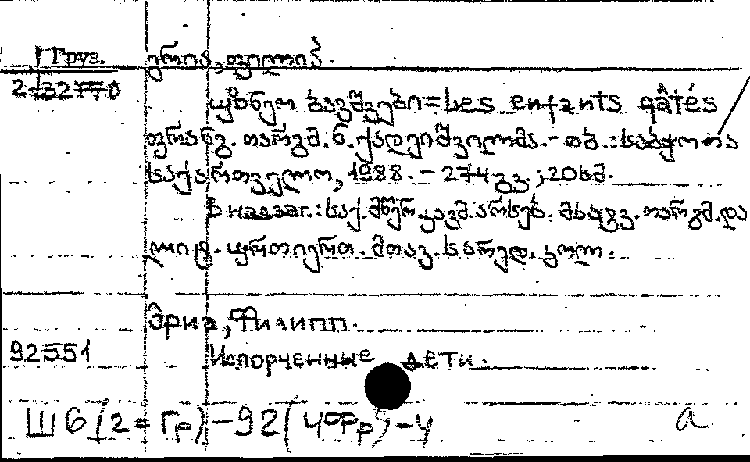 Груз. ერია, ფილიპ.
2-32770
უზნეო ბავშვები = Les enfants gâtés
ფრანგ. თარგმ. ნ. ქადეიშვილმა. - თბ. : საბჭოთა
საქართველო, 1988. - 274 გვ. ; 20 სმ.
В надзаг.: საქ. მწერ. კავშ. არსებ. მხატვ. თარგმ. და
ლიტ. ურთიერთ. მთავ. სარედ. კოლ.
Эриа, Филипп.
92551 Испорченные дети.
Ш6(2=Гр)-92(4Фр)-4 а